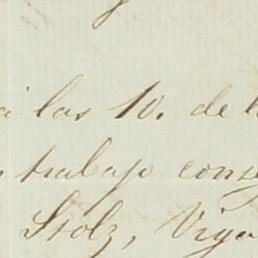 á las 10. de l
trabajo conse
Stolz, Viga